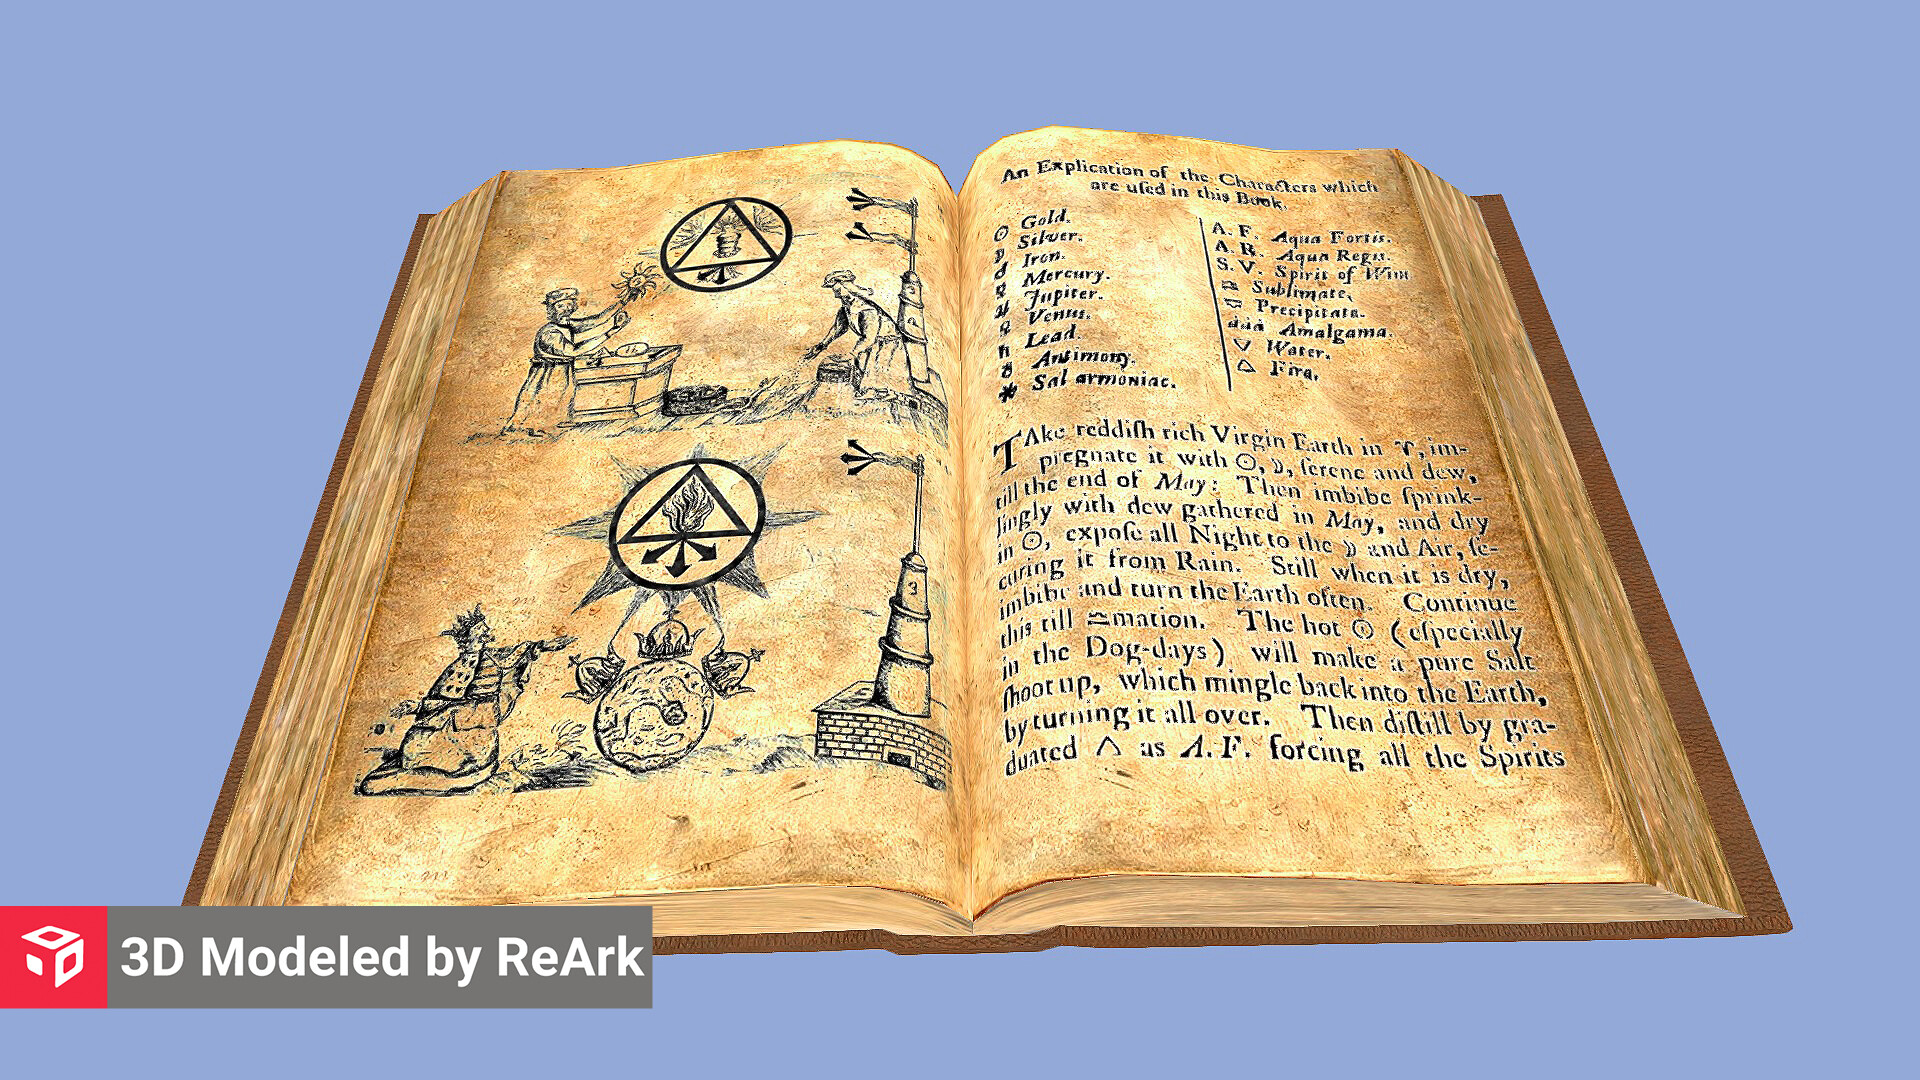 An Explication of the Characters which
are uſed in this Book.
☉ Gold.
☽ Silver.
♂ Iron.
☿ Mercury.
♃ Jupiter.
♀ Venus.
♄ Lead.
♁ Antimony.
✱ Sal armoniac.
A. F. Aqua Fortis.
A. R. Aqua Regis.
S. V. Spirit of Wine
Sublimate.
Precipitata.
aaa Amalgama.
▽ Water.
△ Fire.
TAke reddiſh rich Virgin Earth in ♈, im-
pregnate it with ☉, ☽, ſerene and dew,
till the end of May: Then imbibe ſprink-
lingly with dew gathered in May, and dry
in ☉, expoſe all Night to the ☽ and Air, ſe-
curing it from Rain. Still when it is dry,
imbibe and turn the Earth often. Continue
this till ♎mation. The hot ☉ (eſpecially
in the Dog-days) will make a pure Salt
ſhoot up, which mingle back into the Earth,
by turning it all over. Then diſtill by gra-
duated △ as A. F. forcing all the Spirits
3
3D Modeled by ReArk